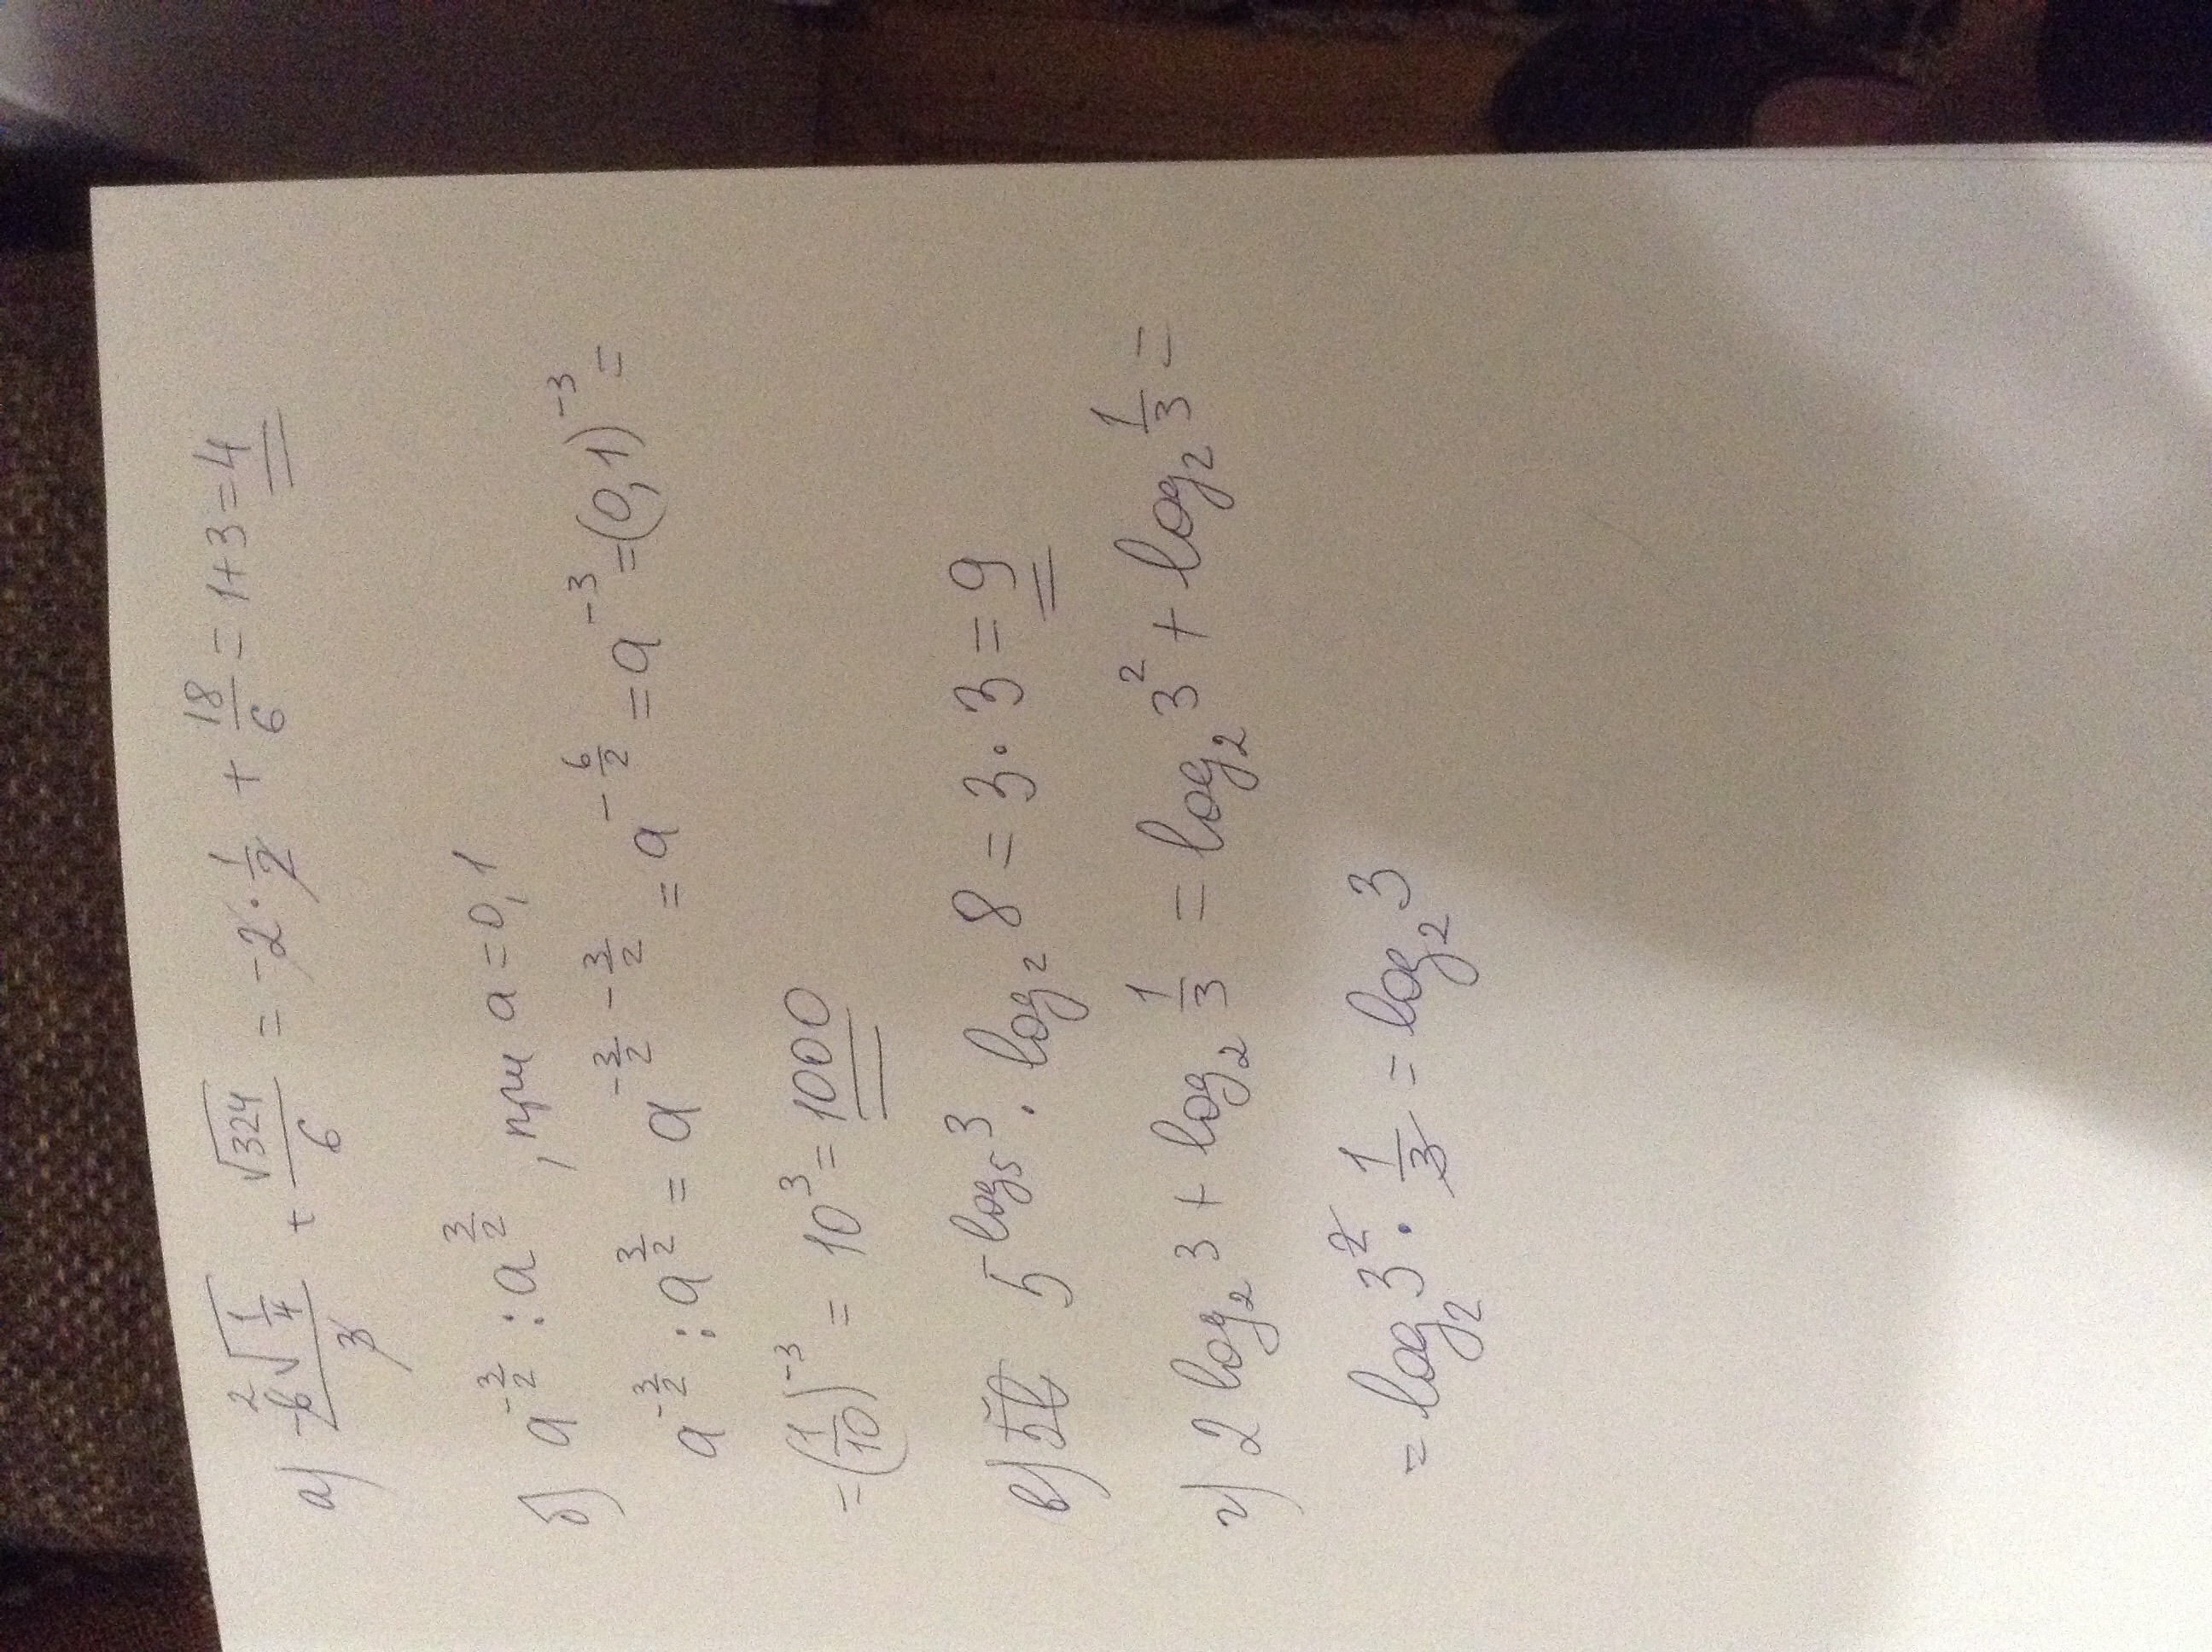 а) -6²√(1/4)/3 + √324/6 = -2·1/2 + 18/6 = 1+3=4
б) a^(-3/2) : a^(3/2) , при a=0,1
a^(-3/2) : a^(3/2) = a^(-3/2 - 3/2) = a^(-6/2) = a^(-3) = (0,1)^(-3) =
= (1/10)^(-3) = 10³ = 1000
в) 5^(log₅3) · log₂8 = 3·3 = 9
г) 2 log₂3 + log₂ 1/3 = log₂3² + log₂ 1/3 =
= log₂3² · 1/3 = log₂3